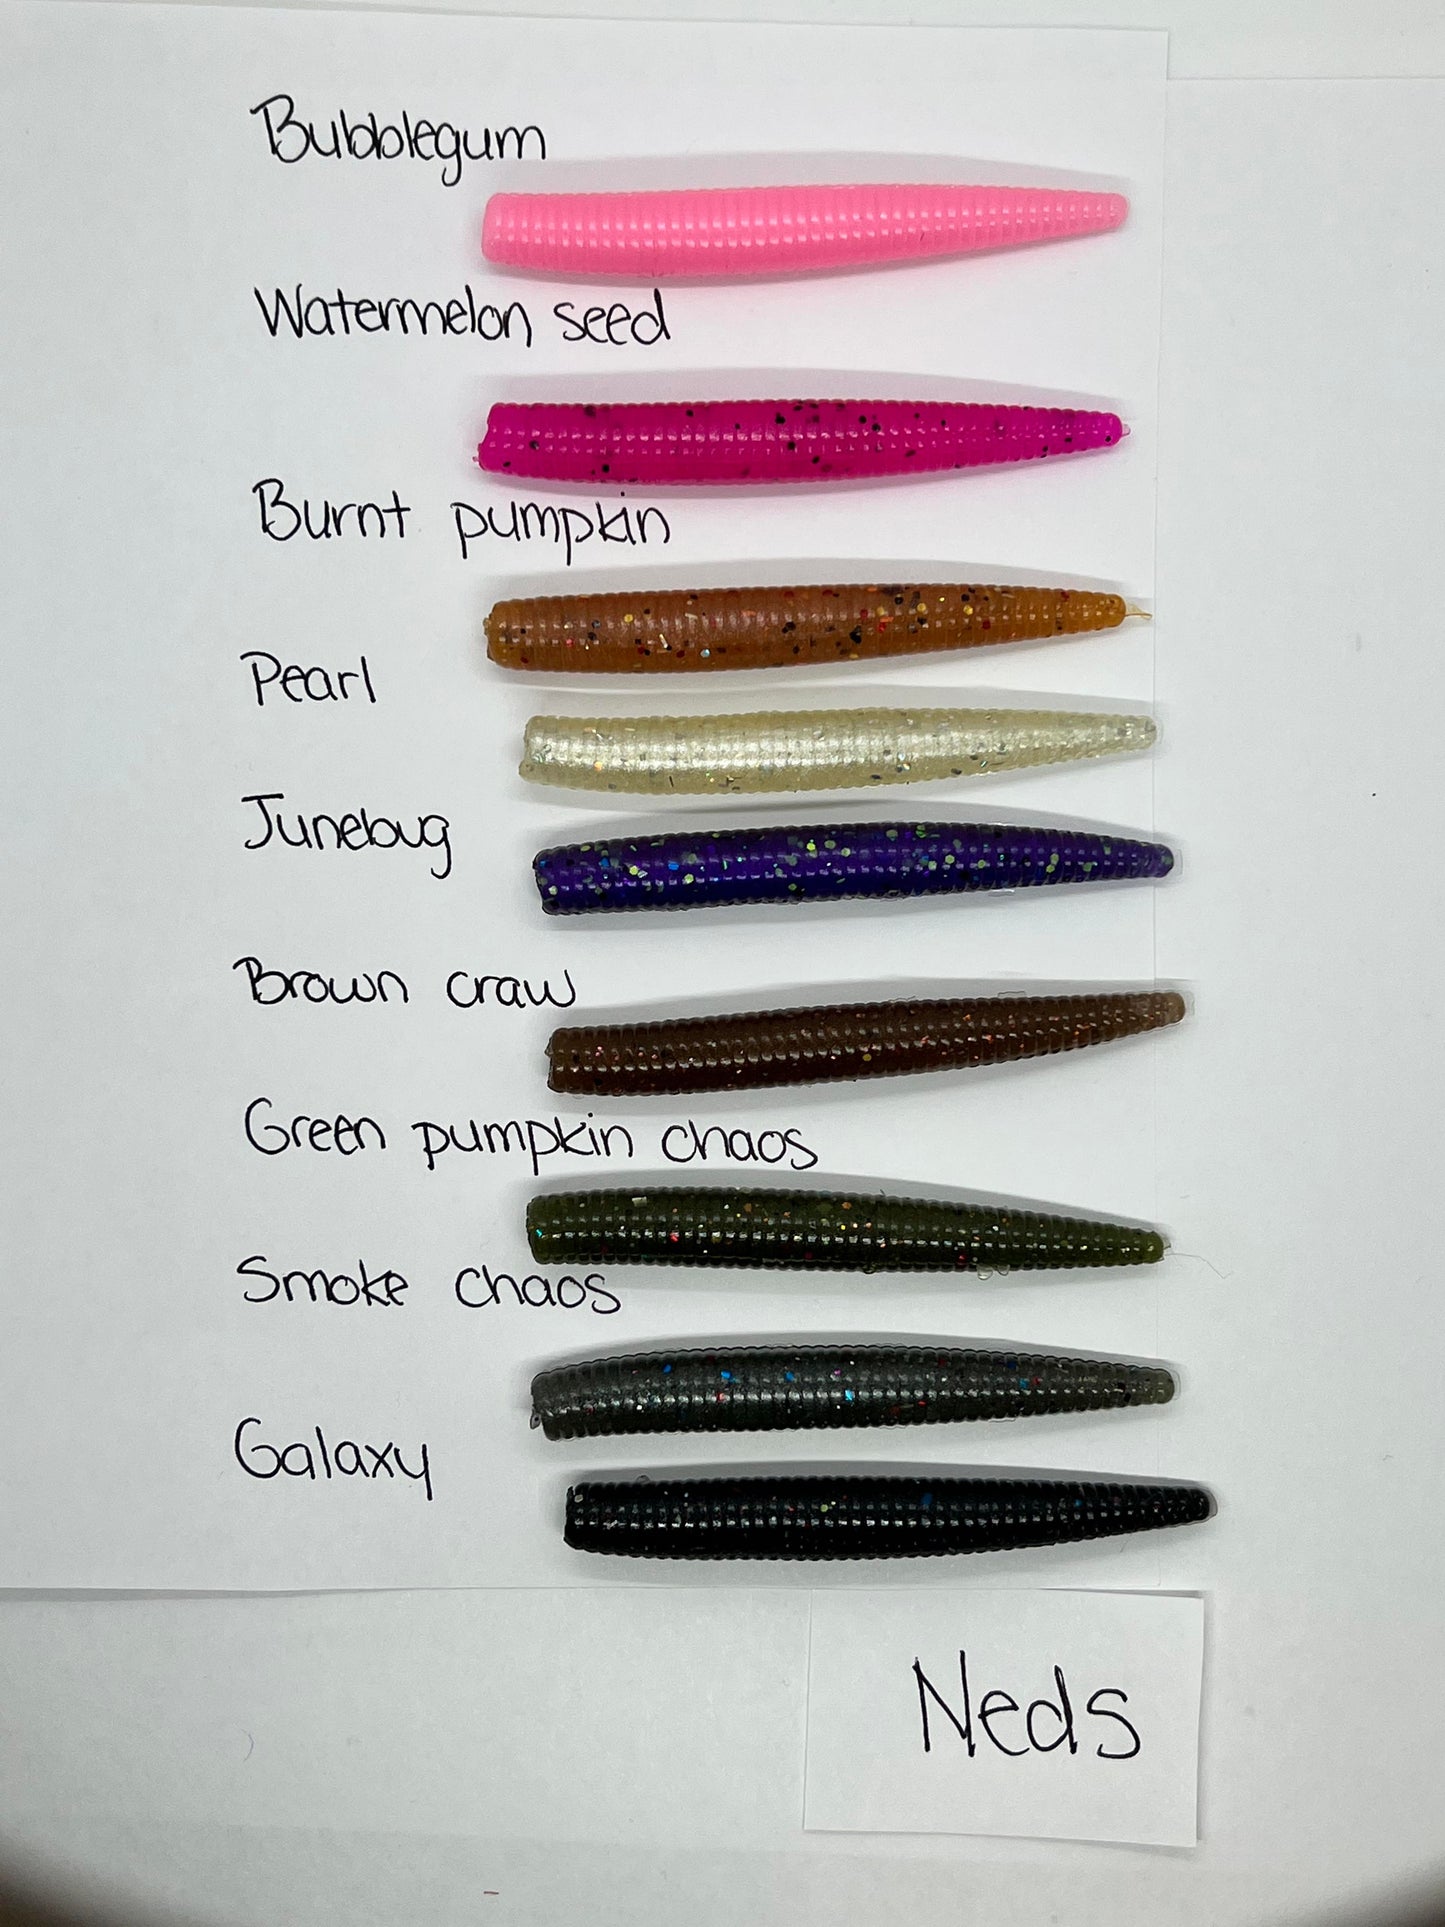 Bubblegum
Watermelon seed
Burnt pumpkin
Pearl
Junebug
Brown craw
Green pumpkin chaos
Smoke chaos
Galaxy
Neds